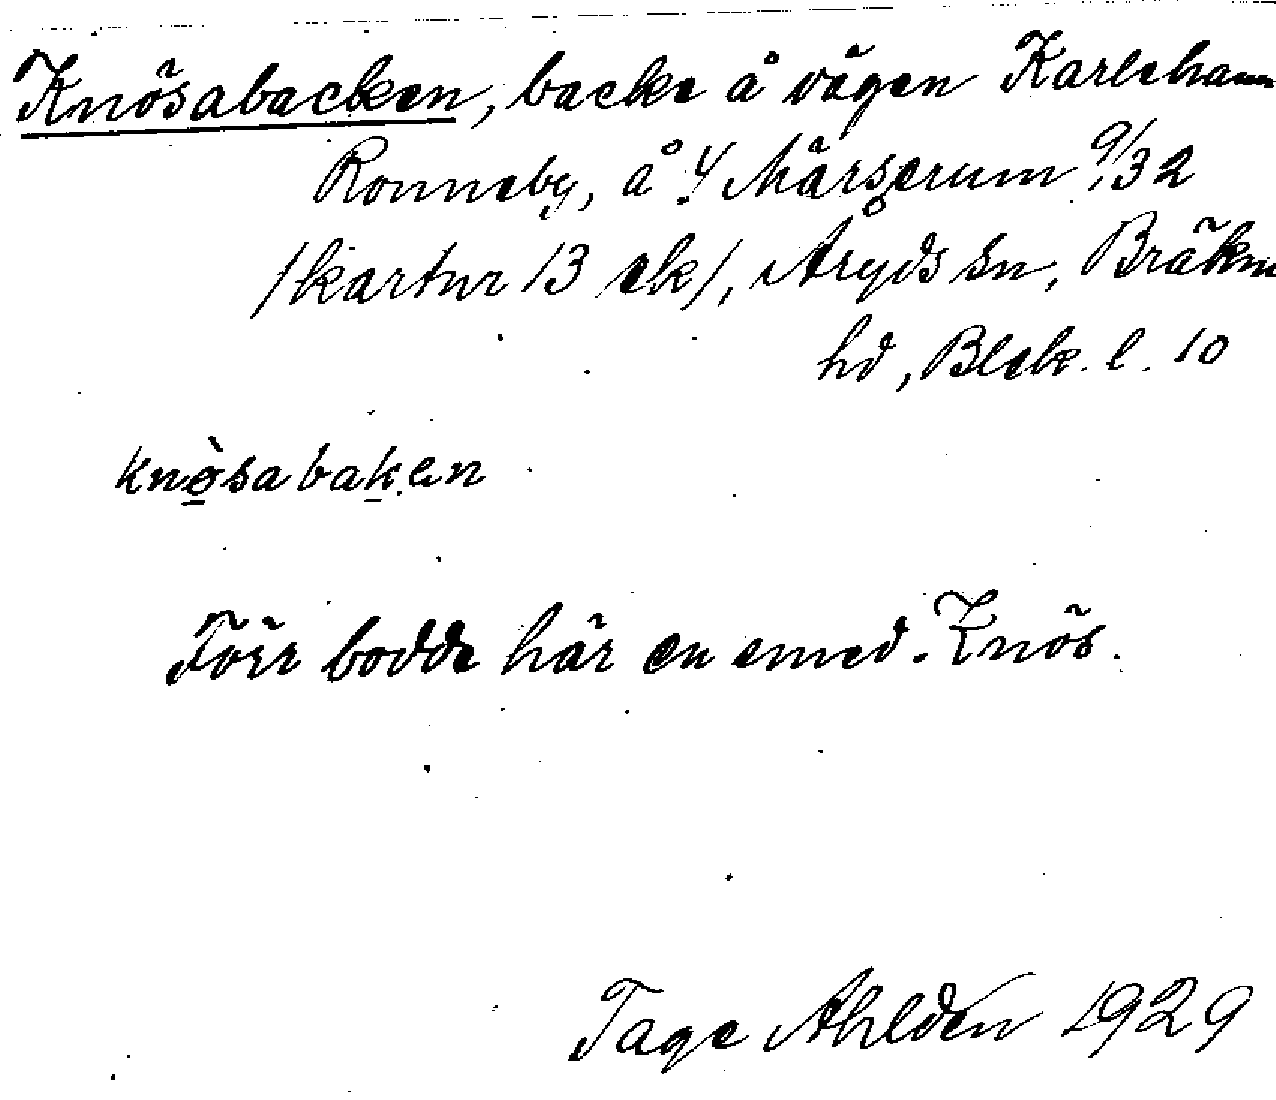 Knösabacken, backe å vägen Karlshamn
Ronneby, å Y Mårserum 9/32
/kartur 13 ek/, Åryds sn, Bräkne
hd, Blek. l. 10
knø̀sabaken
Förr bodde här en smed. Knös.
Tage Ahldén 1929